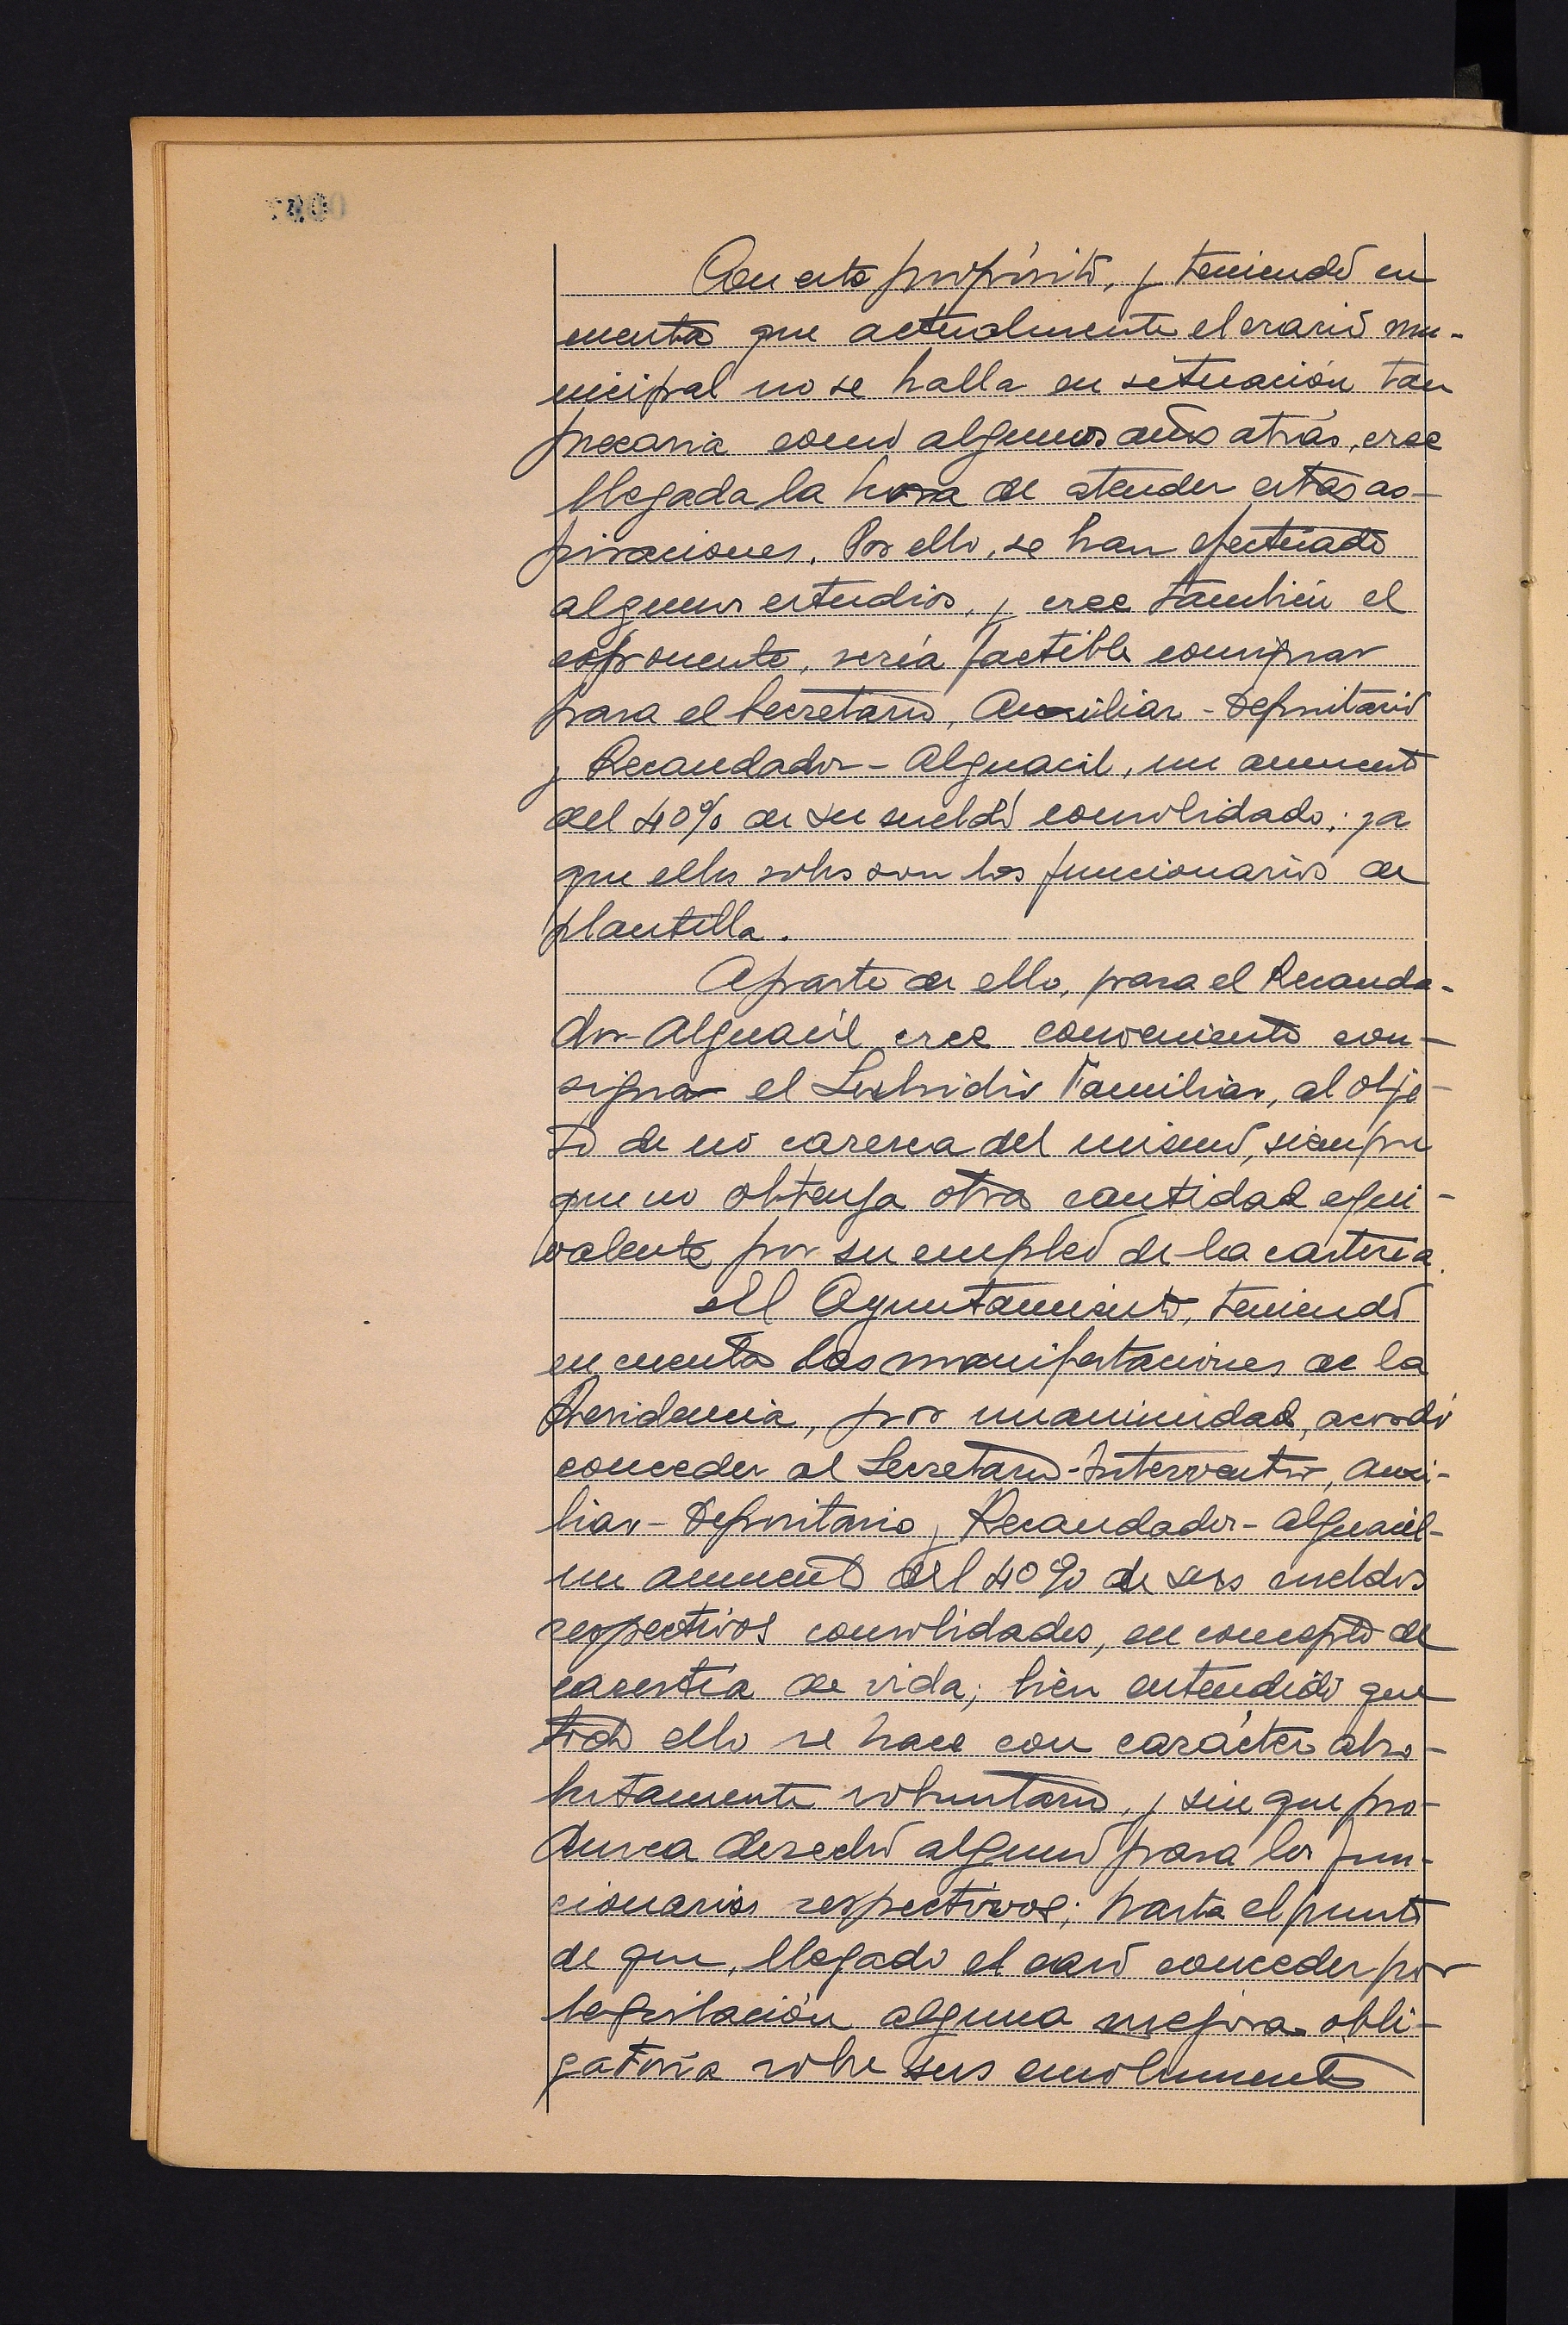 Con este propósito, y teniendo en
cuenta que actualmente el erario mu-
nicipal no se halla en situación tan
precaria como algunos años atrás, cree
llegada la hora de atender estas as-
piraciones. Por ello, se han efectuado
algunos estudios, y cree también el
exponente, sería factible consignar
para el Secretario, Auxiliar-Depositario
y Recaudador-Alguacil, un aumento
del 40% de su sueldo consolidado; ya
que ellos solos son los funcionarios de
plantilla.
Aparte de ello, para el Recauda-
dor-Alguacil cree conveniente con-
signar el Subsidio Familiar, al obje-
to de no caresca del mismo, siempre
que no obtenga otra cantidad equi-
valente por su empleo de la cartería.
El Ayuntamiento, teniendo
en cuenta las manifestaciones de la
Presidencia, por unanimidad, acordó
conceder al Secretario-Interventor, Auxi-
liar-Depositario y Recaudador-Alguacil-
un aumento del 40% de sus sueldos
respectivos consolidados, en concepto de
carestía de vida; bien entendido que
todo ello se hace con carácter abso-
lutamente voluntario, y sin que pro-
duzca derecho alguno para los fun-
cionarios respectivos; hasta el punto
de que, llegado el caso conceder por
legislación alguna mejora obli-
gatoria sobre sus emolumentos